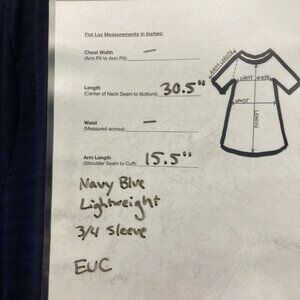 Flat Lay Measurements in Inches:
Chest Width
(Arm Pit to Arm Pit): —
Length
(Center of Neck Seam to Bottom): 30.5"
Waist
(Measured across): —
Arm Length
(Shoulder Seam to Cuff): 15.5"
Navy Blue
Lightweight
3/4 Sleeve
EUC
ARM LENGTH
CHEST WIDTH
WAIST
LENGTH